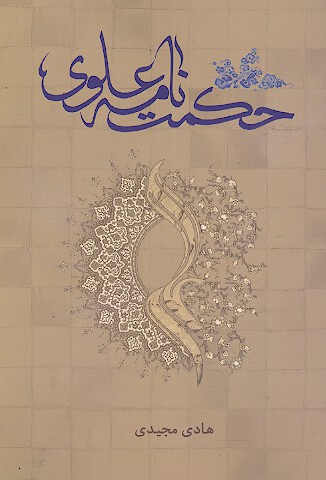 حکمت نامه علوی
هادی مجیدی